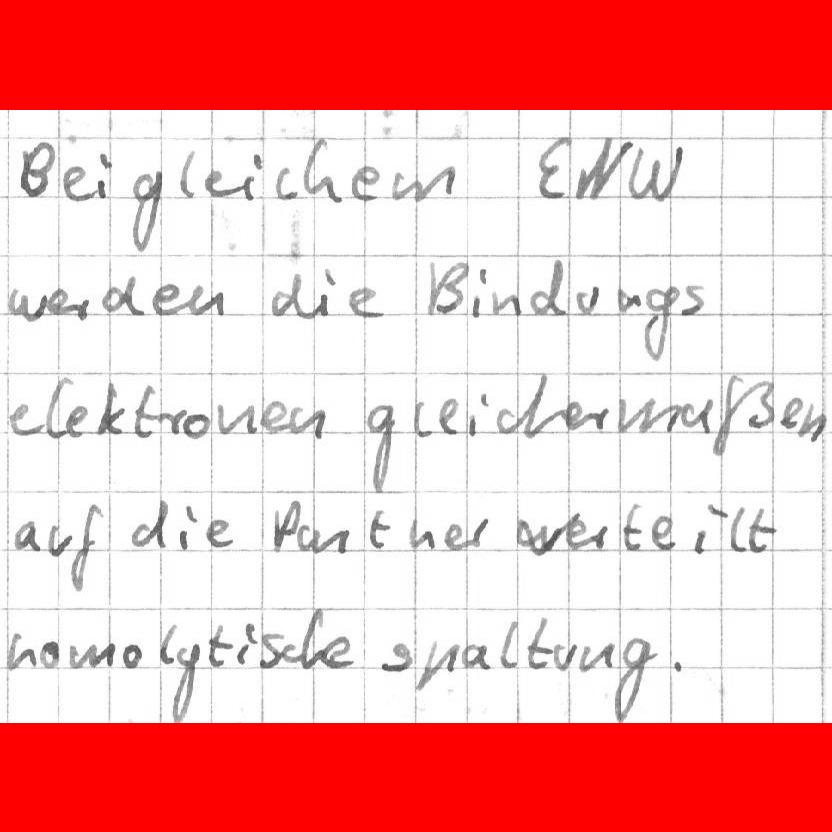 Bei gleichem ENW
werden die Bindungs
elektronen gleichermaßen
auf die Partner verteilt
homolytische spaltung.